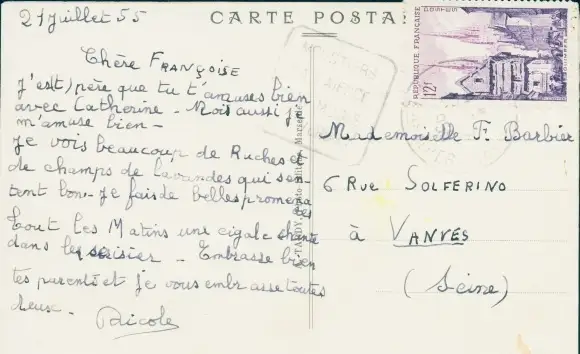 21 Juillet 55
CARTE POSTA
Chère FRANÇOISE
J'es(t)père que tu t'amuses bien
avec Catherine. Mois aussi je
m'amuse bien -
Je vois beaucoup de Ruches et
de champs de lavandes qui sen-
tent bon - Je fais de belles promena
des
tout les Matins une cigale chante
dans le cerisier - Embrasse bien
tes parents et je vous embrasse toutes
deux -
Nicole
TARDY, Marseille
RÉPUBLIQUE FRANÇAISE
POSTES
12F
QUIMPER
Mademoiselle F. Barbier
6 Rue SOLFERINO
à VANVES
(Seine)